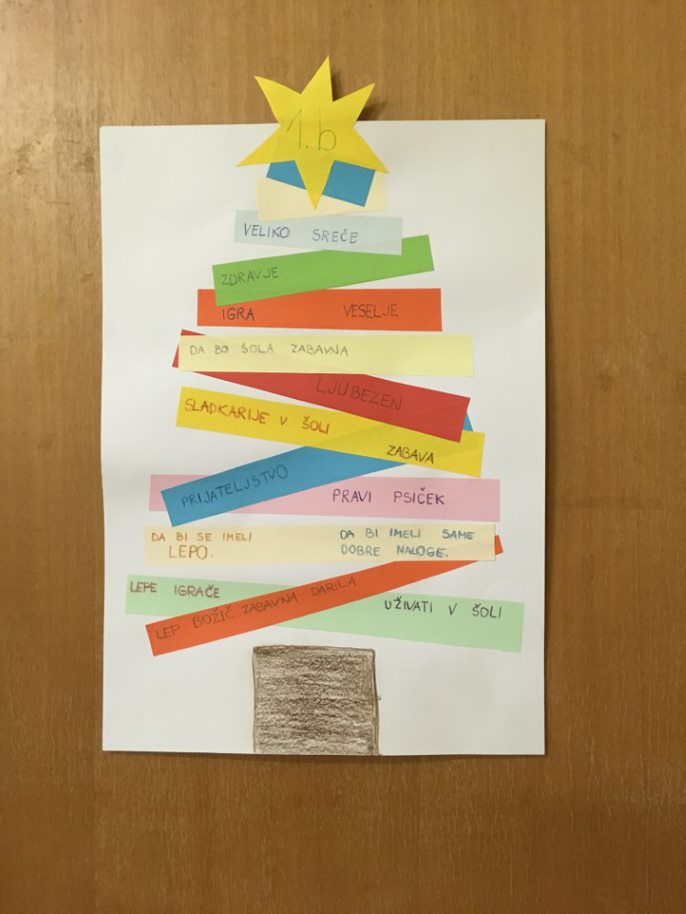 1.b
VELIKO SREČE
ZDRAVJE
IGRA VESELJE
DA BO ŠOLA ZABAVNA
LJUBEZEN
SLADKARIJE V ŠOLI
ZABAVA
PRIJATELJSTVO
PRAVI PSIČEK
DA BI SE IMELI
LEPO.
DA BI IMELI SAME
DOBRE NALOGE.
LEPE IGRAČE
UŽIVATI V ŠOLI
LEP BOŽIČ, ZABAVNA DARILA